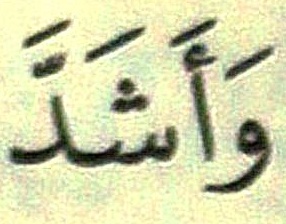 وَأَشَدَّ